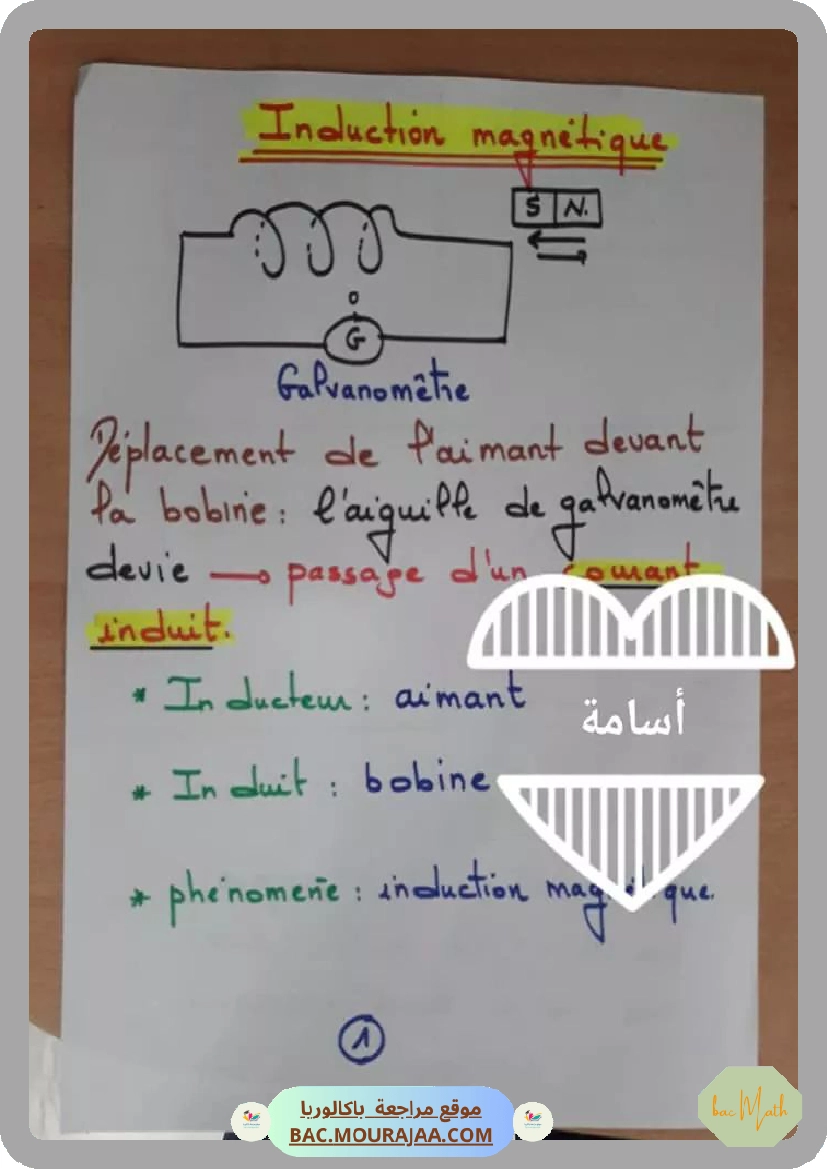 Induction magnétique
S N.
o
G
Galvanomètre
Déplacement de l'aimant devant
la bobine : l'aiguille de galvanomètre
devie → passage d'un courant
induit.
* Inducteur : aimant
أسامة
* Induit : bobine
* phénomène : induction magnétique.
1
موقع مراجعة باكالوريا
BAC.MOURAJAA.COM
bac Math